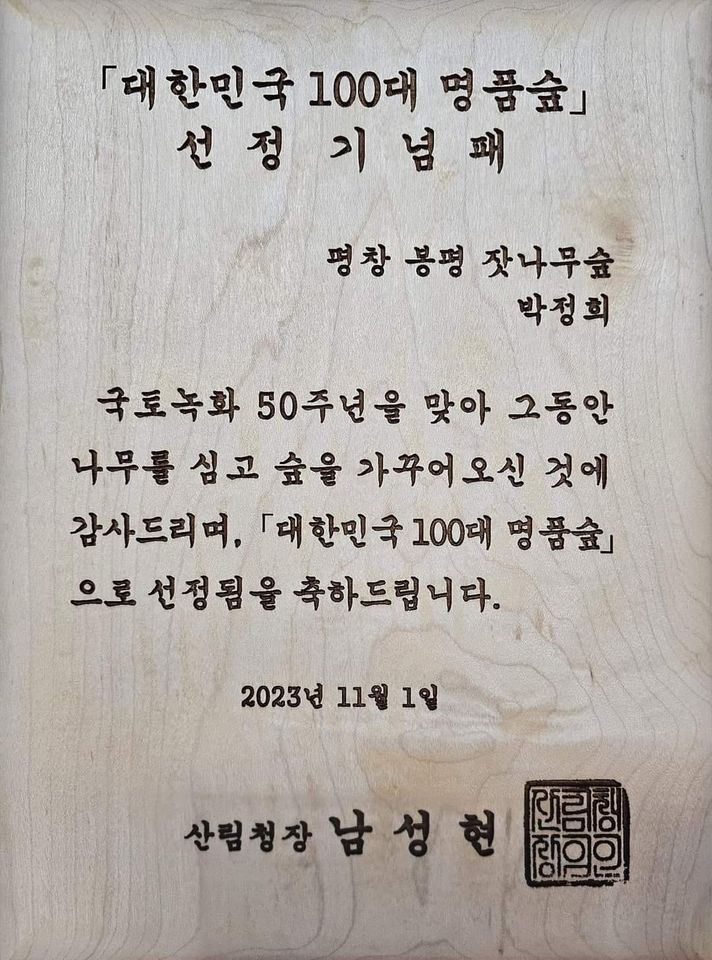 「대한민국 100대 명품숲」
선 정 기 념 패
평창 봉평 잣나무숲
박정희
국토녹화 50주년을 맞아 그동안
나무를 심고 숲을 가꾸어오신 것에
감사드리며, 「대한민국 100대 명품숲」
으로 선정됨을 축하드립니다.
2023년 11월 1일
산림청장 남 성 현
산림청
장의인